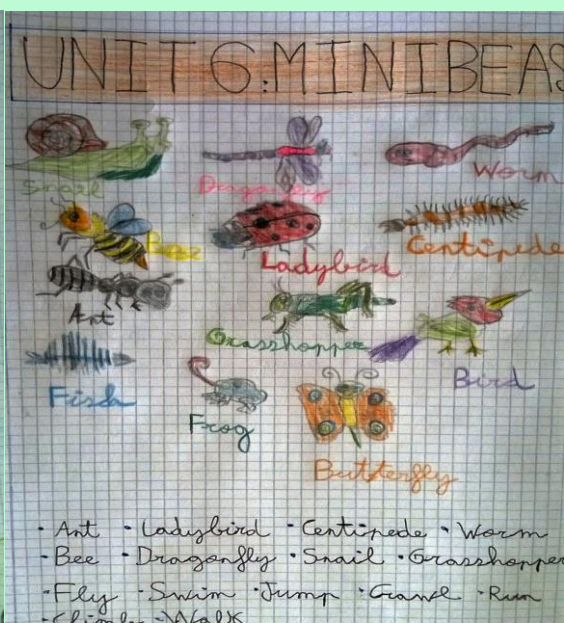 UNIT 6: MINIBEAS
Snail Dragonfly Worm
Bee Ladybird Centipede
Ant Grasshopper
Fish Frog Bird
Butterfly
· Ant · Ladybird · Centipede · Worm
· Bee · Dragonfly · Snail · Grasshopper
· Fly · Swim · Jump · Crawl · Run
· Climb · Walk